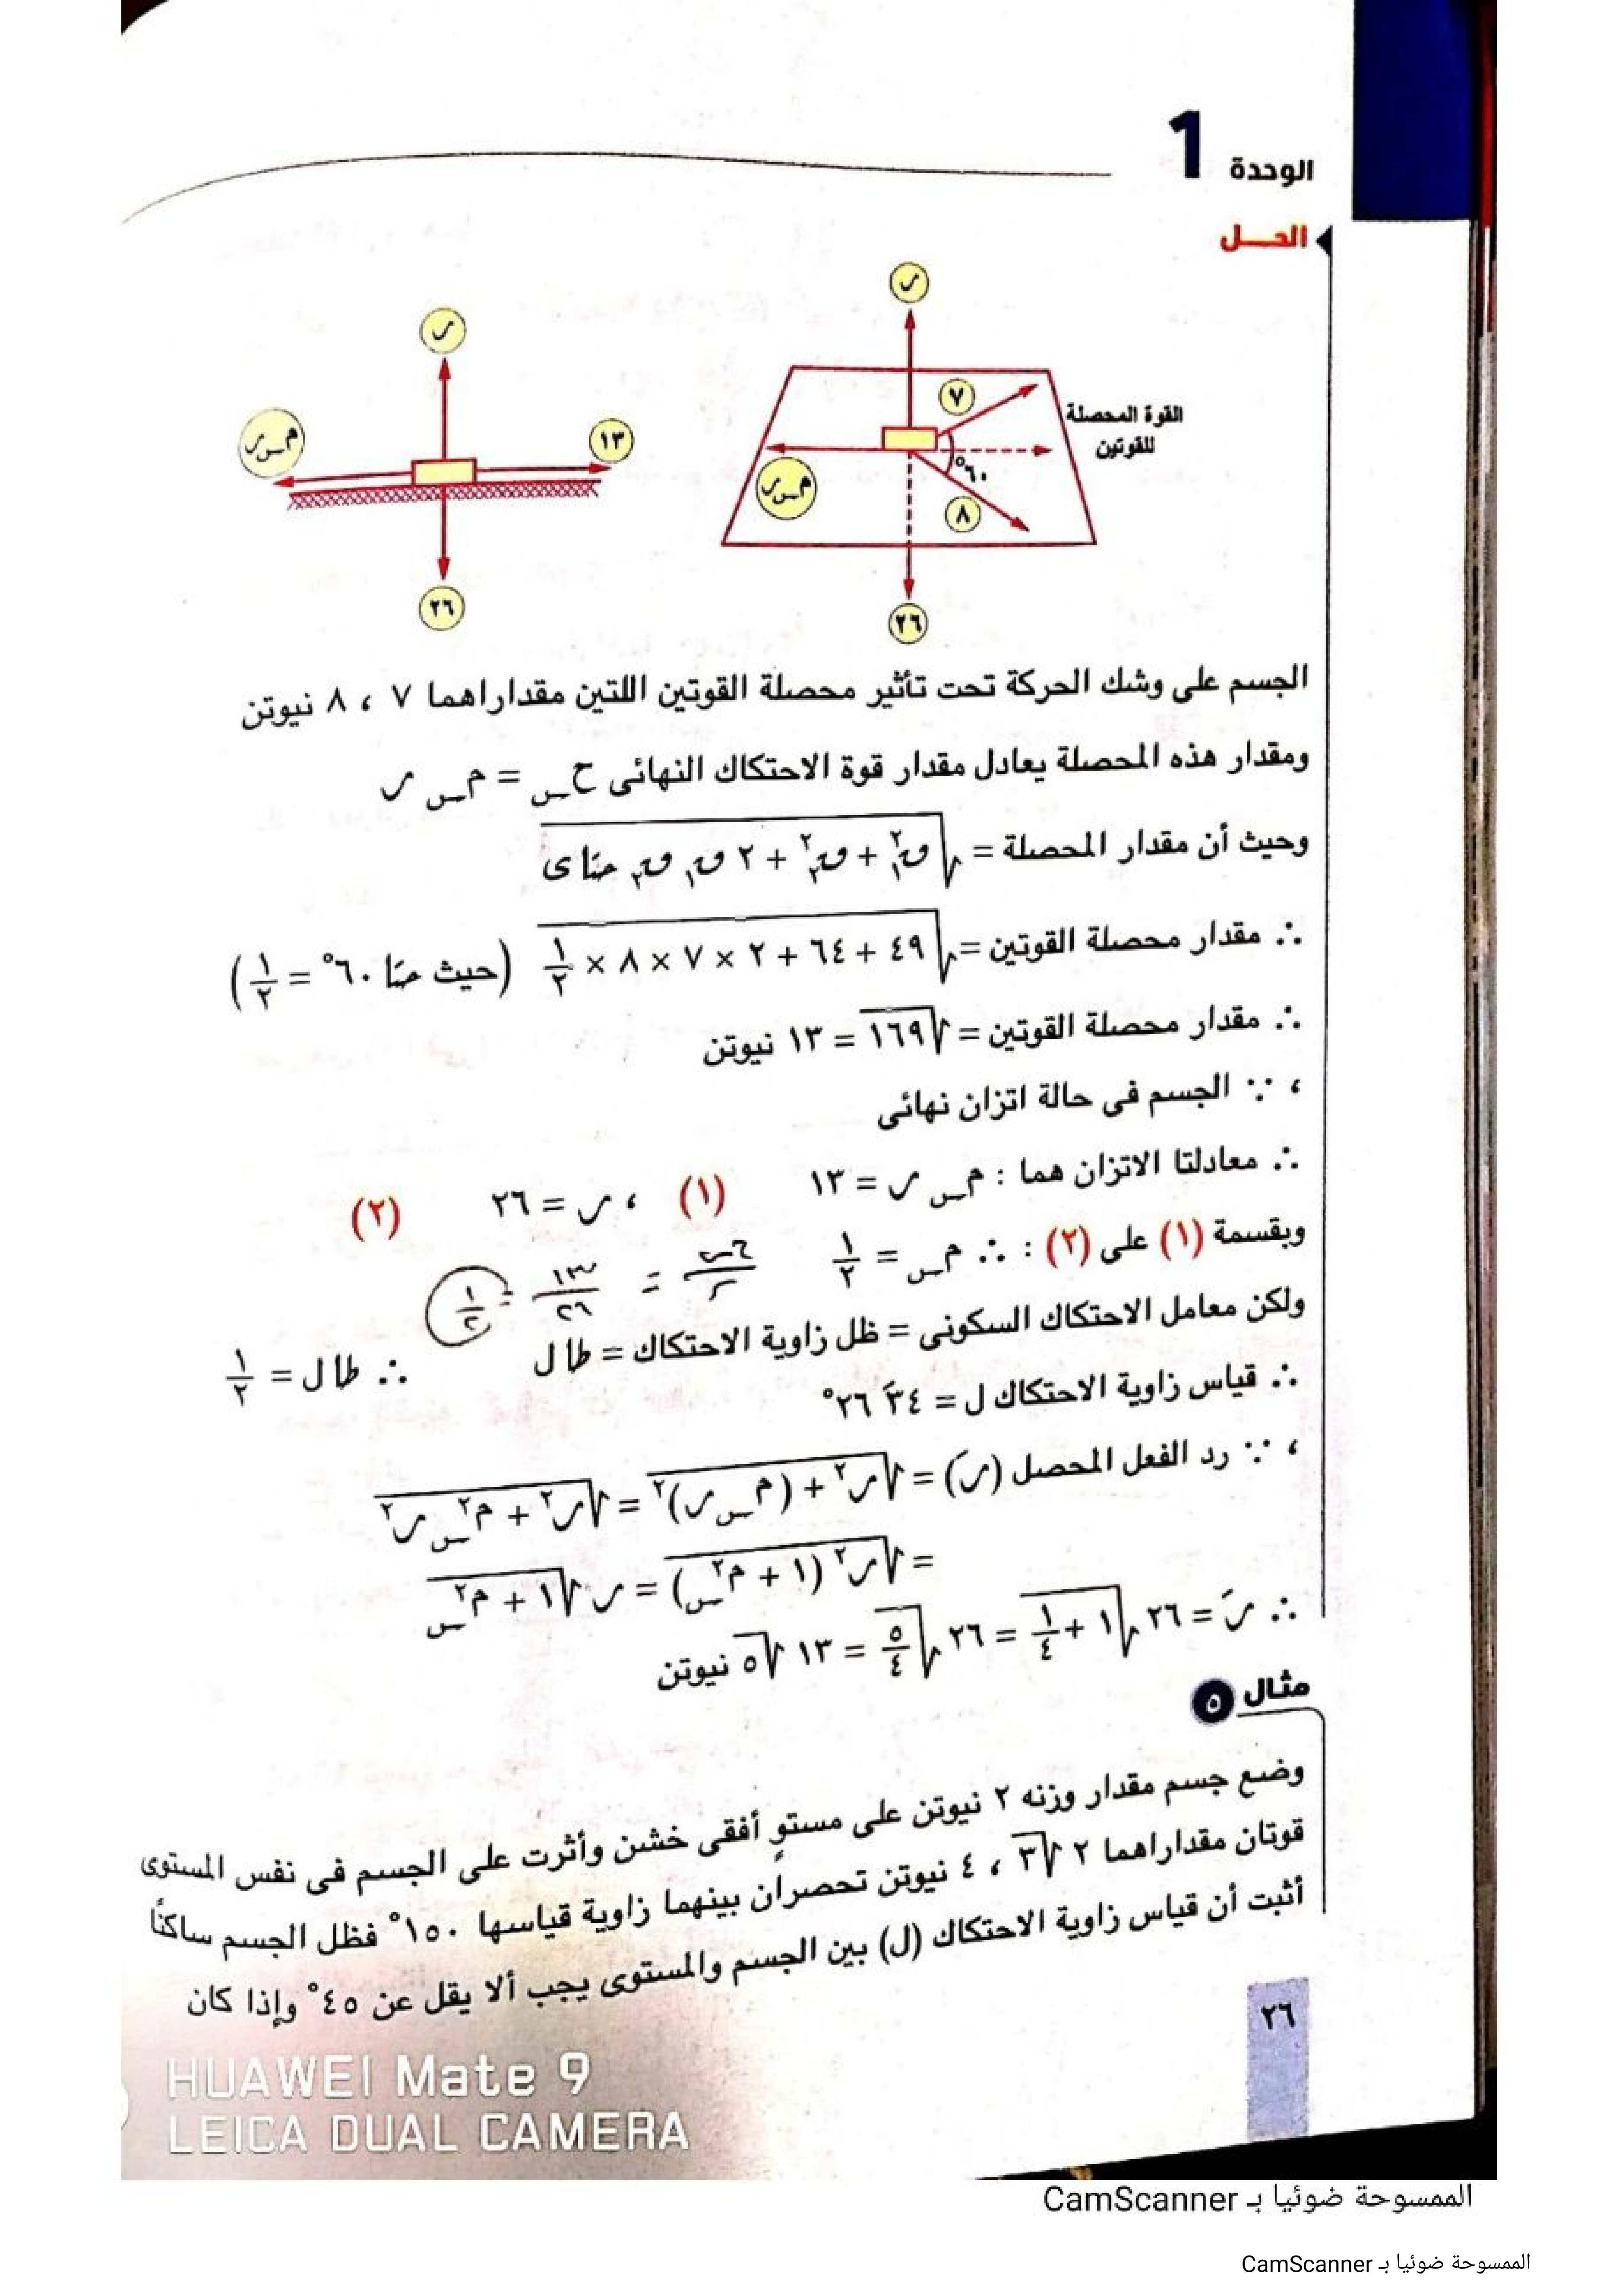 الوحدة 1
الحـــل
س
٧
القوة المحصلة
للقوتين
٦٠°
٨
م_س س
٢٦
س
١٣
م_س س
٢٦
الجسم على وشك الحركة تحت تأثير محصلة القوتين اللتين مقداراهما ٧ ، ٨ نيوتن
ومقدار هذه المحصلة يعادل مقدار قوة الاحتكاك النهائى ح_س = م_س س
وحيث أن مقدار المحصلة = √(ق₁² + ق₂² + ٢ ق₁ ق₂ حتا ى)
∴ مقدار محصلة القوتين = √(٤٩ + ٦٤ + ٢ × ٧ × ٨ × ١/٢) (حيث حتا ٦٠° = ١/٢)
∴ مقدار محصلة القوتين = √١٦٩ = ١٣ نيوتن
، ∵ الجسم فى حالة اتزان نهائى
∴ معادلتا الاتزان هما : م_س س = ١٣ (١) ، س = ٢٦ (٢)
وبقسمة (١) على (٢) : ∴ م_س = ١/٢
= ١٣/٢٦ = ١/٢
ولكن معامل الاحتكاك السكونى = ظل زاوية الاحتكاك = طا ل ∴ طا ل = ١/٢
∴ قياس زاوية الاحتكاك ل = ٣٤َ ٢٦°
، ∵ رد الفعل المحصل (سَ) = √(س² + (م_س س)²) = √(س² + م²_س س²)
= √(س² (١ + م²_س)) = س √(١ + م²_س)
∴ سَ = ٢٦ √(١ + ١/٤) = ٢٦ √(٥/٤) = ١٣ √٥ نيوتن
مثال ٥
وضع جسم مقدار وزنه ٢ نيوتن على مستوٍ أفقى خشن وأثرت على الجسم فى نفس المستوى
قوتان مقداراهما ٢ √٣ ، ٤ نيوتن تحصران بينهما زاوية قياسها ١٥٠° فظل الجسم ساكنًا
أثبت أن قياس زاوية الاحتكاك (ل) بين الجسم والمستوى يجب ألا يقل عن ٤٥° وإذا كان
٢٦
HUAWEI Mate 9
LEICA DUAL CAMERA
الممسوحة ضوئيا بـ CamScanner
الممسوحة ضوئيا بـ CamScanner